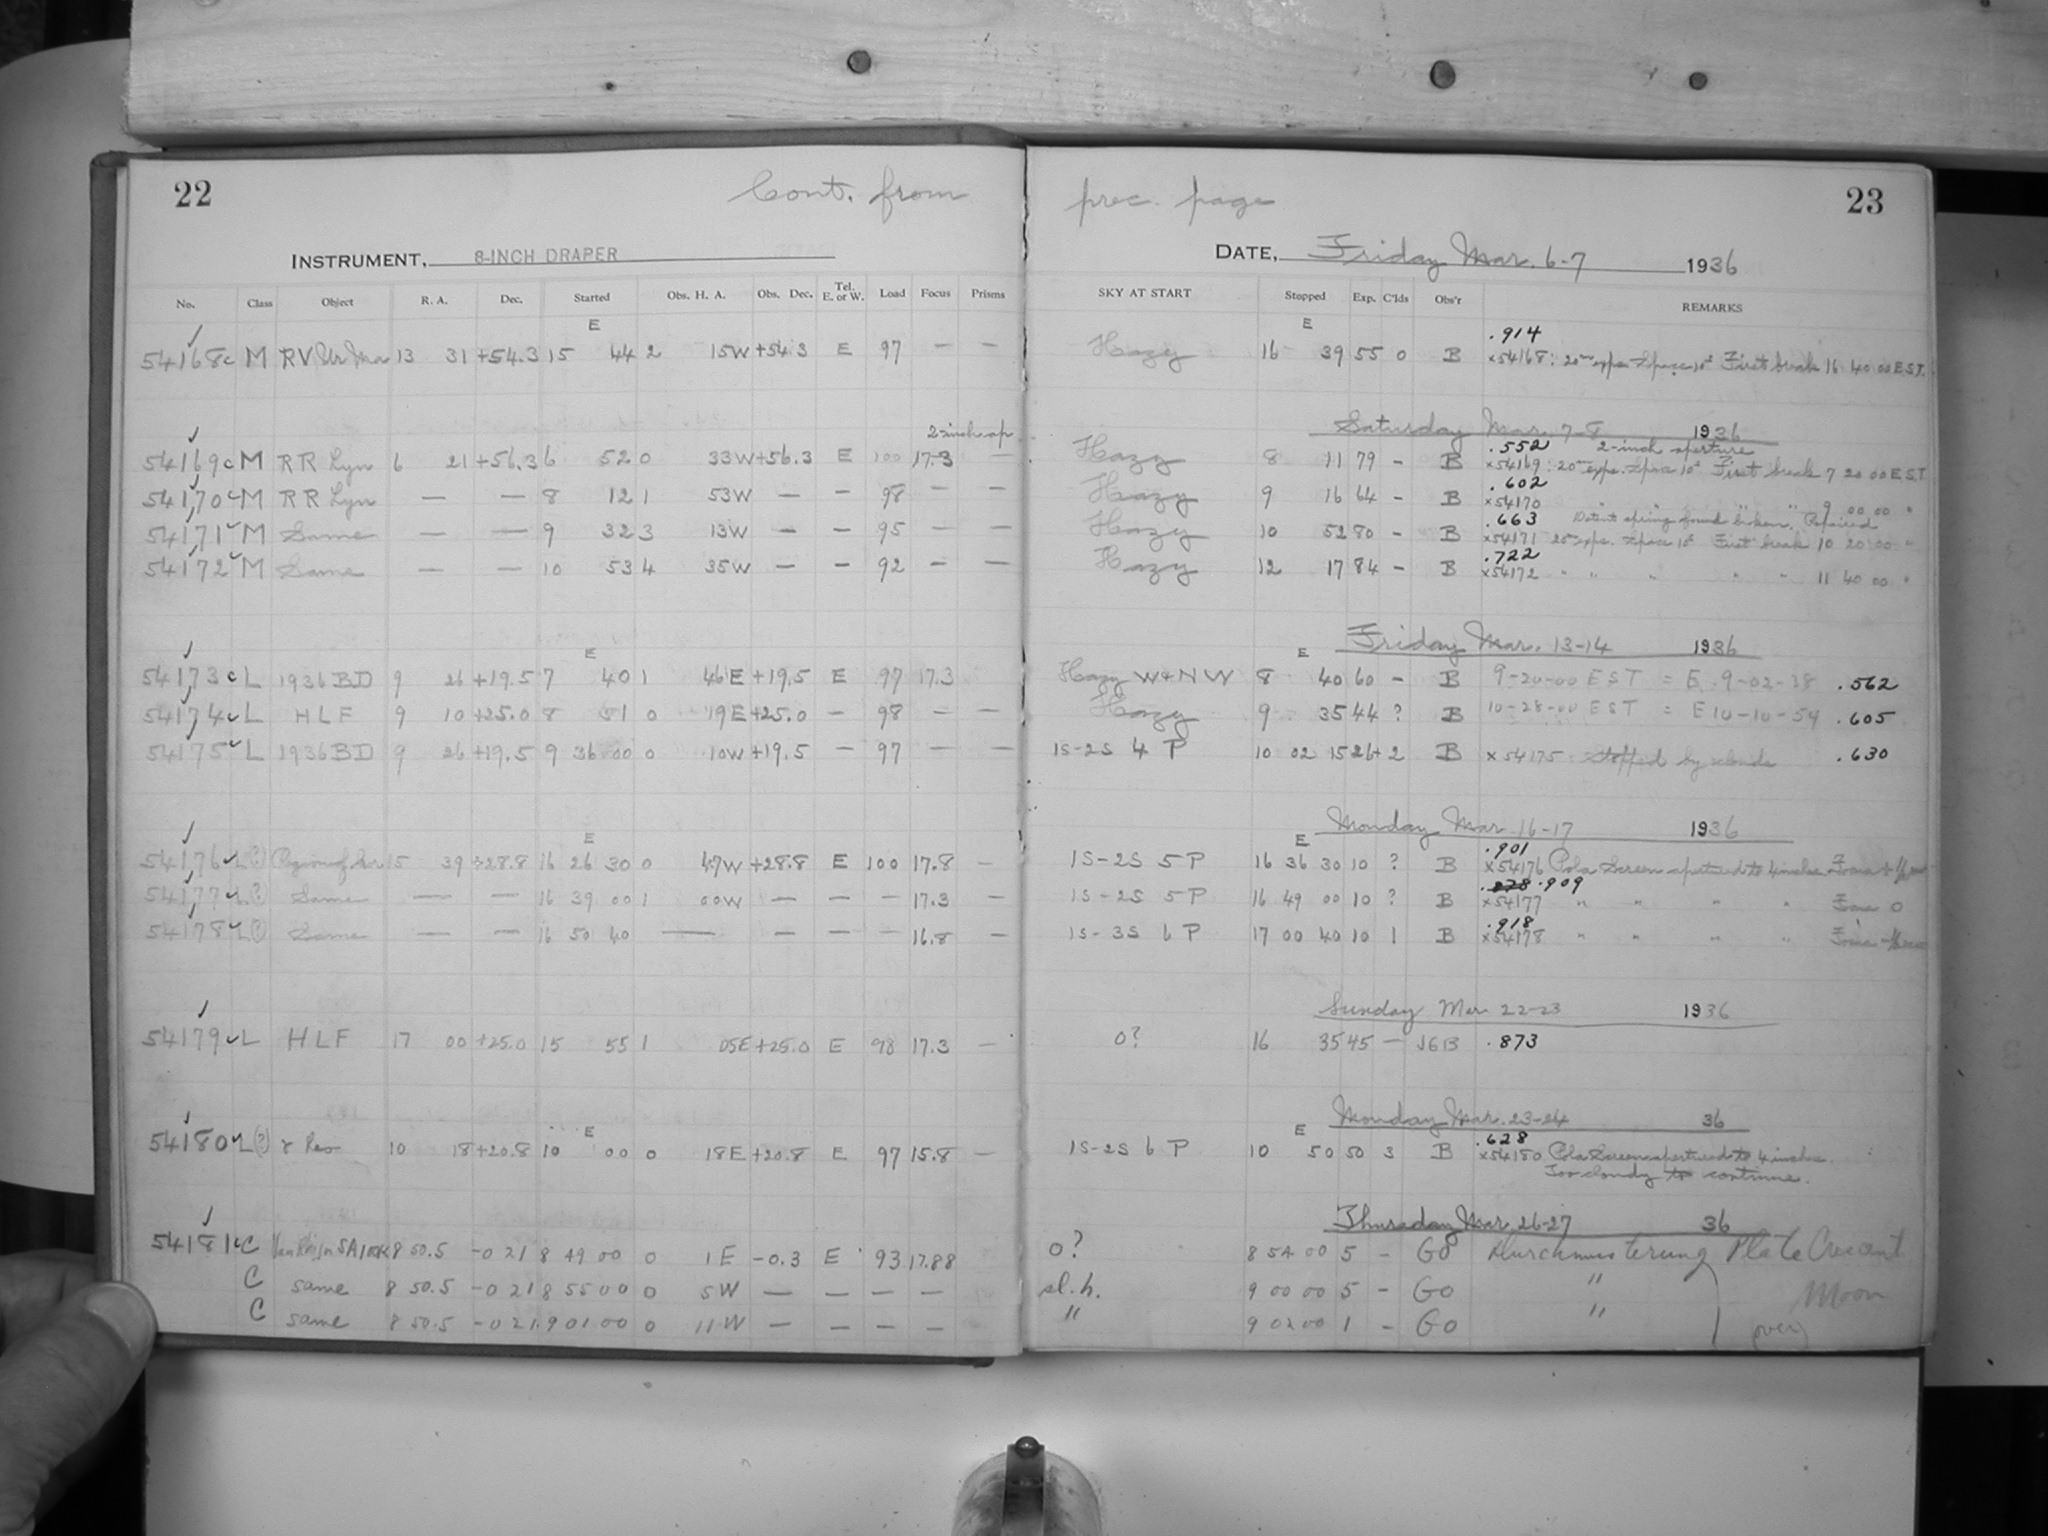 22 Cont. from prec. page 23
INSTRUMENT, 8-INCH DRAPER DATE, Friday Mar. 6-7 1936
No. Class Object R. A. Dec. Started Obs. H. A. Obs. Dec. Tel. E. or W. Load Focus Prisms SKY AT START Stopped Exp. C'lds Obs'r REMARKS
E E .914
54168c M RV Ur Ma 13 31 +54.3 15 44 2 15W +54.3 E 97 — — Hazy 16 39 55 0 B x54168: 20 exps. Space 10 First break 16 40 00 E.S.T.
Saturday Mar. 7-8 1936
2-inch ap. .552 2-inch aperture
54169c M RR Lyn 6 21 +56.3 6 52 0 33W +56.3 E 100 17.3 — Hazy 8 11 79 - B x54169: 20 exps. Space 10 First break 7 20 00 E.S.T
.602
54170 M RR Lyn — — 8 12 1 53W — — 98 — — Hazy 9 16 64 - B x54170 " " " 9 00 00 "
.663 Detent spring found broken. Repaired
54171 M Same — — 9 32 3 13W — — 95 — — Hazy 10 52 80 - B x54171 20 exps. Space 10 First break 10 20 00 "
.722
54172 M Same — — 10 53 4 35W — — 92 — — Hazy 12 17 84 - B x54172 " " " " " 11 40 00 "
Friday Mar. 13-14 1936
E E
54173c L 1936BD 9 26 +19.5 7 40 1 46E +19.5 E 97 17.3 Hazy W+NW 8 40 60 - B 9-20-00 EST = E 9-02-38 .562
54174 L HLF 9 10 +25.0 8 51 0 19E +25.0 - 98 — — Hazy 9 35 44 ? B 10-28-00 EST = E 10-10-54 .605
54175 L 1936BD 9 26 +19.5 9 36 00 0 10W +19.5 — 97 — — 1S-2S 4 P 10 02 15 26+ 2 B x54175 Stopped by clouds .630
Monday Mar. 16-17 1936
E E .901
54176 L(?) Region of 15 39 +28.8 16 26 30 0 47W +28.8 E 100 17.8 — 1S-2S 5 P 16 36 30 10 ? B x54176 Pola Screen apertured to 4 inches
.909
54177 L(?) Same — — 16 39 00 1 00W — — — 17.3 — 1S-2S 5 P 16 49 00 10 ? B x54177 " " " " 0
.918
54178 L(?) Same — — 16 50 40 — — — — 16.8 — 1S-3S 6 P 17 00 40 10 1 B x54178 " " " "
Sunday Mar 22-23 1936
54179 L HLF 17 00 +25.0 15 55 1 05E +25.0 E 98 17.3 — 0? 16 35 45 — JGB .873
Monday Mar. 23-24 36
E E .628
54180 L(?) γ Leo 10 18 +20.8 10 00 0 18E +20.8 E 97 15.8 — 1S-2S 6 P 10 50 50 3 B x54180 Pola Screen apertured to 4 inches.
Too cloudy to continue.
Thursday Mar. 26-27 36
54181 C SA 8 50.5 -0 21 8 49 00 0 1E -0.3 E 93 17.88 0? 8 54 00 5 - Go Durchmusterung Plate Crescent
C same 8 50.5 -0 21 8 55 00 0 5W — — — — sl.h. 9 00 00 5 - Go " Moon
C same 8 50.5 -0 21 9 01 00 0 11W — — — — " 9 02 00 1 - Go " over